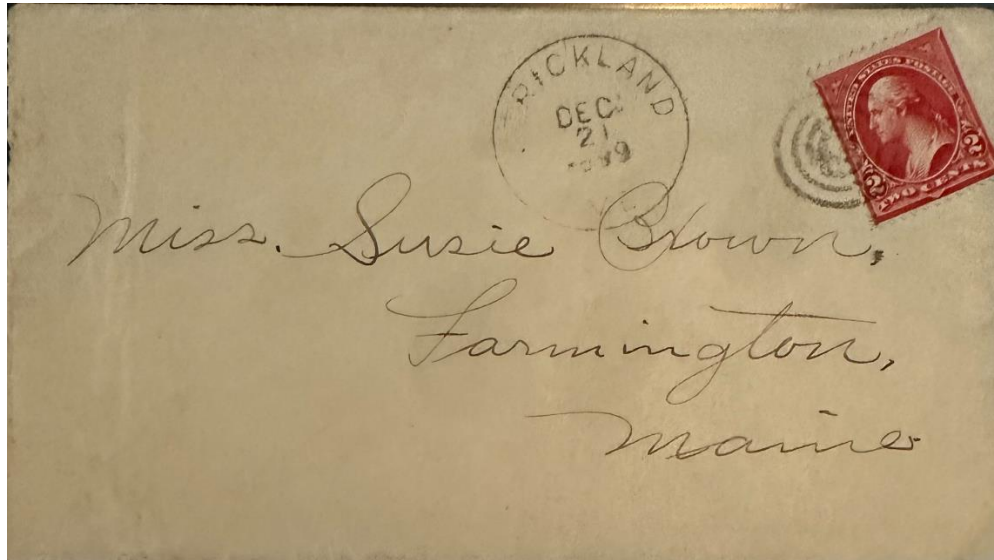 RICKLAND
DEC
21
UNITED STATES POSTAGE
2 2
TWO CENTS
Miss. Susie Brown,
Farmington,
Maine